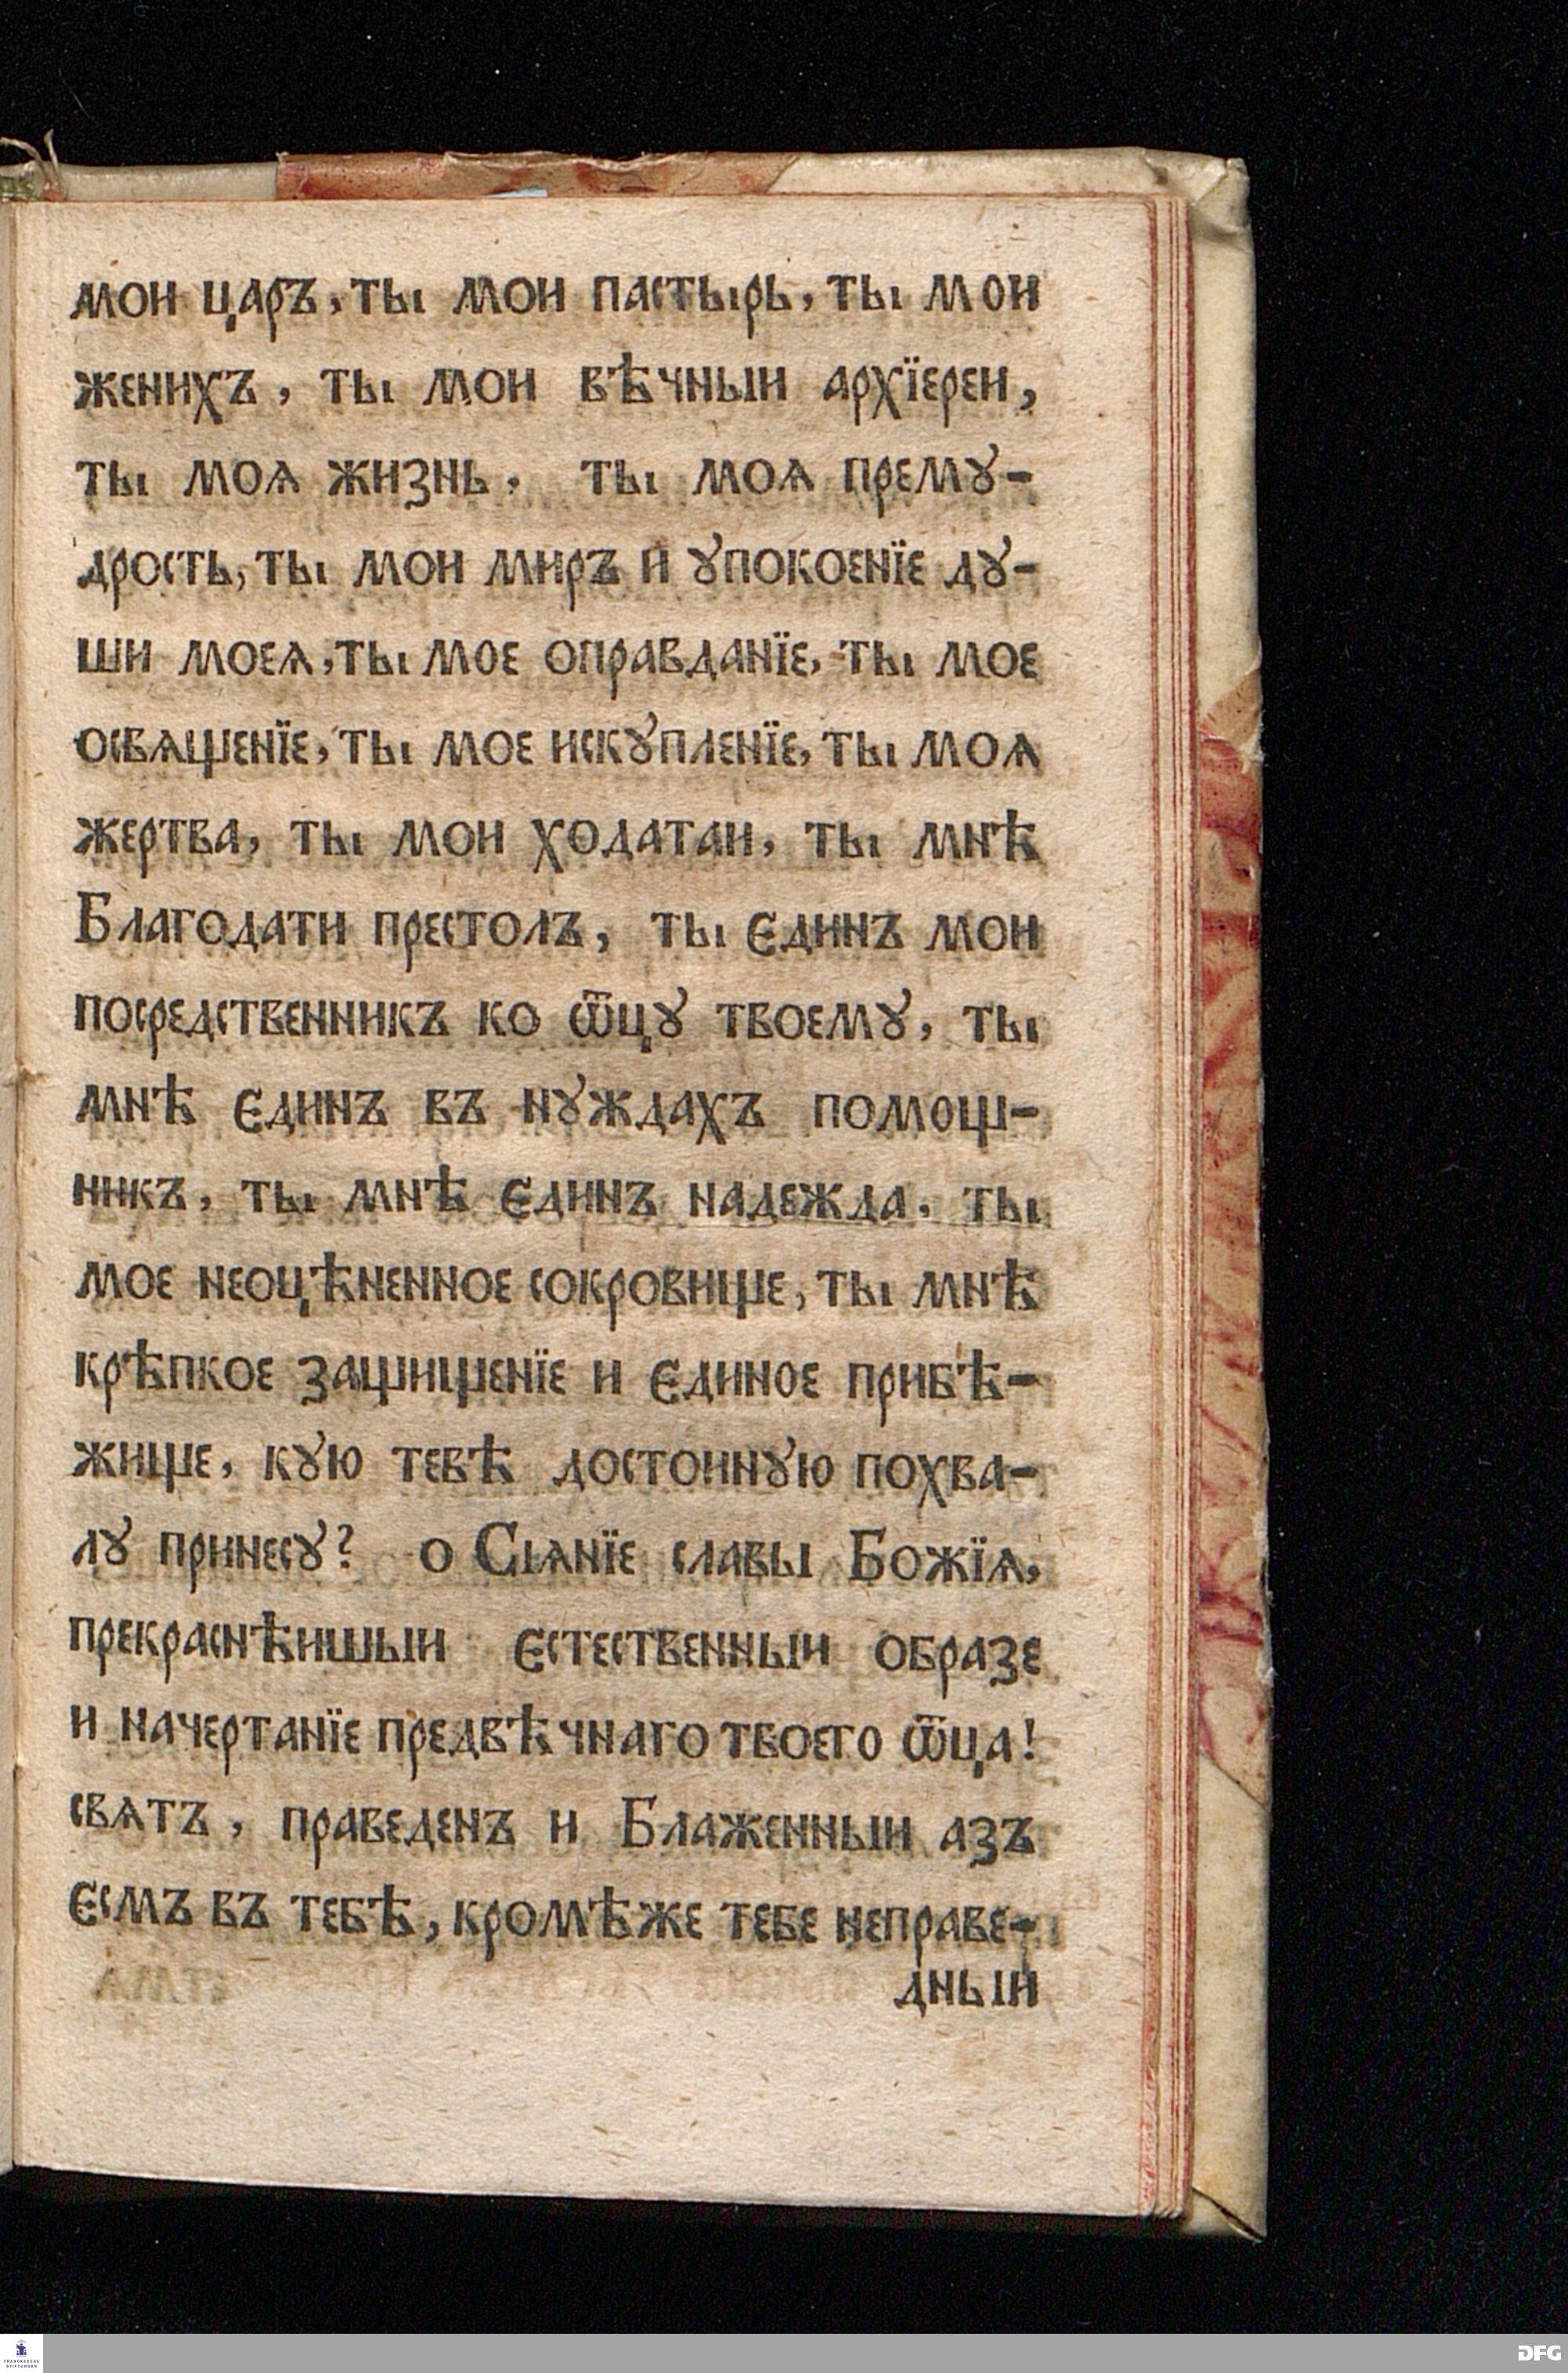 мои царъ, ты мои пастырь, ты мои
женихъ, ты мои вѣчныи архїереи,
ты моѧ жизнь, ты моѧ премꙋ-
дрость, ты мои миръ и ꙋпокоенїе дꙋ-
ши моеѧ, ты мое оправданїе, ты мое
освѧщенїе, ты мое искꙋпленїе, ты моѧ
жертва, ты мои ходатаи, ты мнѣ
Благодати престолъ, ты єдинъ мои
посредственникъ ко ѿцꙋ твоемꙋ, ты
мнѣ єдинъ въ нꙋждахъ помощ-
никъ, ты мнѣ єдинъ надежда, ты
мое неоцѣненное сокровище, ты мнѣ
крѣпкое защищенїе и єдиное прибѣ-
жище, кꙋю тебѣ достоинꙋю похва-
лꙋ принесꙋ? о Сіѧнїе славы Божїѧ,
прекраснѣишыи єстественныи образе
и начертанїе предвѣчнаго твоего ѿца!
свѧтъ, праведенъ и Блаженныи азъ
єсмъ въ тебѣ, кромѣже тебе неправе-
дныи
FRANCKESCHE
STIFTUNGEN
DFG